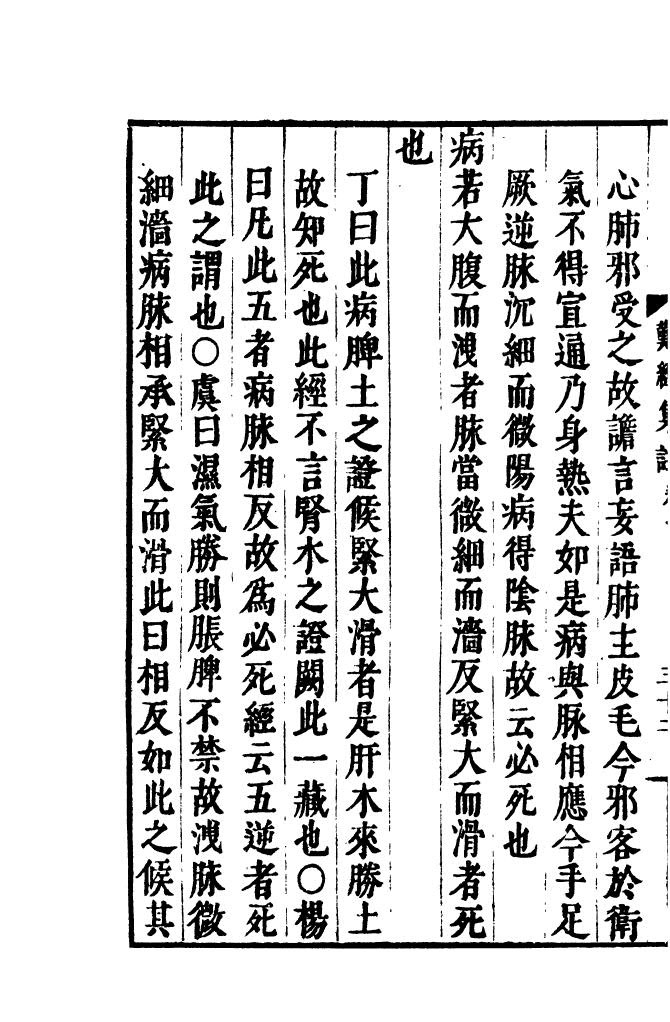 難經集註
心肺邪受之故譫言妄語肺主皮毛今邪客於衛
氣不得宣通乃身熱夫如是病與脉相應今手足
厥逆脉沉細而微陽病得陰脉故云必死也
病若大腹而洩者脉當微細而濇反緊大而滑者死
也
丁曰此病脾土之證候緊大滑者是肝木來勝土
故知死也此經不言腎水之證闕此一藏也○楊
曰凡此五者病脉相反故爲必死經云五逆者死
此之謂也○虞曰濕氣勝則脹脾不禁故洩脉微
細濇病脉相承緊大而滑此曰相反如此之候其